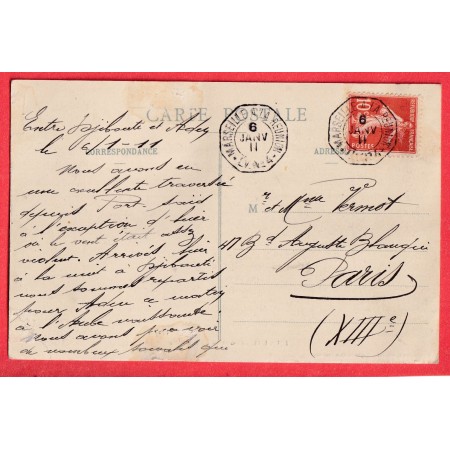 CARTE POSTALE
CORRESPONDANCE
Entre Djibouti et Aden
le 6/1-11
Nous avons eu
une excellente traversée
depuis Port-Saïd
à l'exception d'hier
où le vent était assez
violent. Arrivés hier
à la nuit à Djibouti
nous sommes repartis
pour Aden ce matin
à l'aube
nous avons pu voir
à nombreux qui
MARSEILLE A LA REUNION
6
JANV
11
L.V. N° 4
10
POSTES
6
JANV
11
M
ADRES
Mr et Mme Vermot
47 Bd Auguste Blanqui
Paris
(XIIIe)